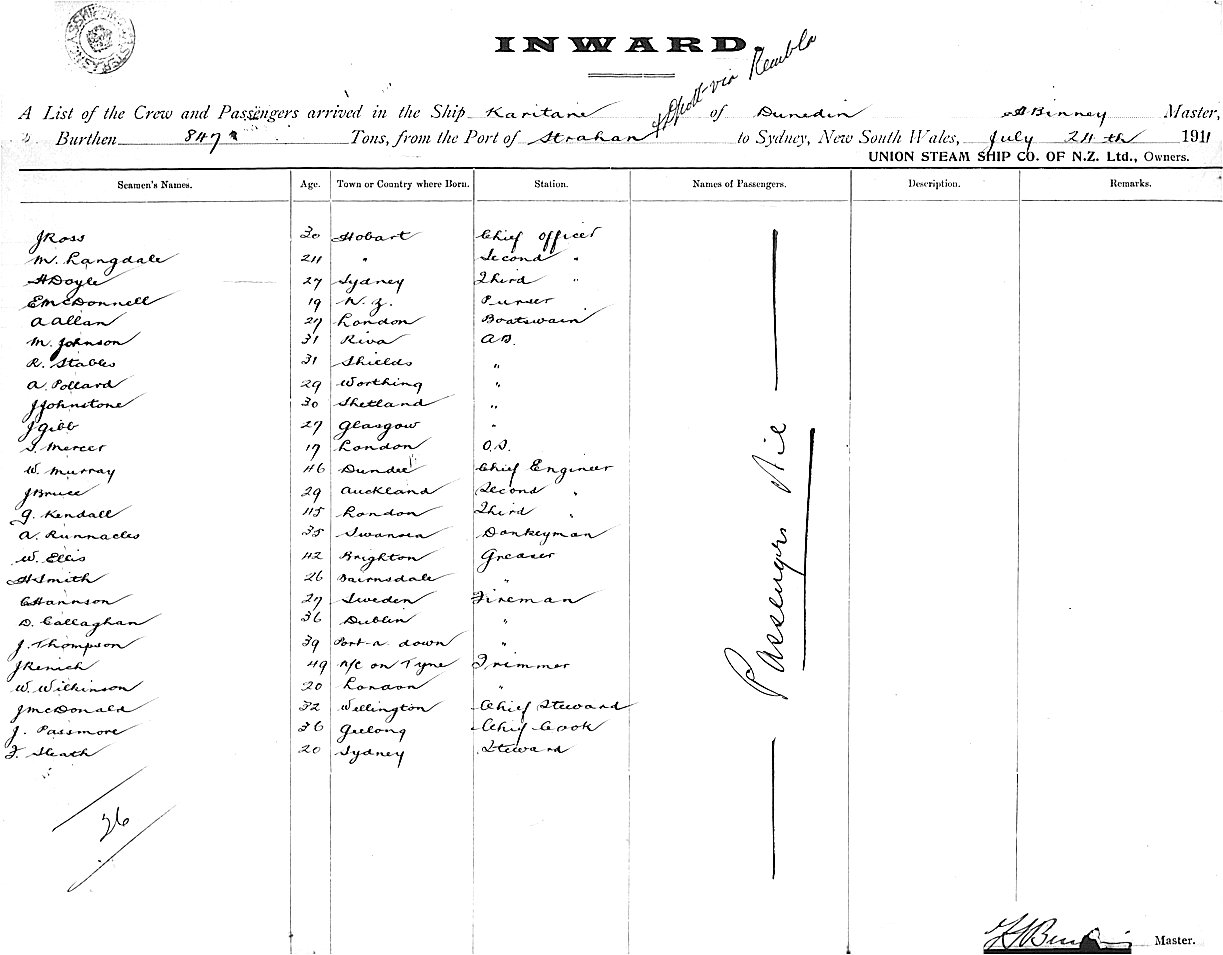 INWARD.
& Dport via Kembla
A List of the Crew and Passengers arrived in the Ship Karitane of Dunedin A Binney Master,
Burthen 847 Tons, from the Port of Strahan to Sydney, New South Wales, July 24th 1911
UNION STEAM SHIP CO. OF N.Z. Ltd., Owners.
Seamen's Names. Age. Town or Country where Born. Station. Names of Passengers. Description. Remarks.
J Ross 30 Hobart Chief Officer
M. Langdale 24 " Second "
H Doyle 27 Sydney Third "
E McDonnell 19 N. Z. Purser
A Allan 27 London Boatswain
M. Johnson 31 Riva A.B.
R. Stables 31 Shields "
A. Pollard 29 Worthing "
J Johnstone 30 Shetland "
J Gibb 27 Glasgow "
S. Mercer 17 London O.S.
W. Murray 46 Dundee Chief Engineer
J Bruce 29 Auckland Second "
G. Kendall 45 London Third "
A. Runnacles 35 Swansea Donkeyman
W. Ellis 42 Brighton Greaser
H Smith 26 Bairnsdale "
C Hannson 27 Sweden Fireman
D. Callaghan 36 Dublin "
J. Thompson 39 Port-a-down "
J Renich 49 N/c on Tyne Trimmer
W. Wilkinson 20 London "
J McDonald 32 Wellington Chief Steward
J. Passmore 36 Geelong Chief Cook
F. Sleath 20 Sydney Steward
Passengers Nil
26
Master.